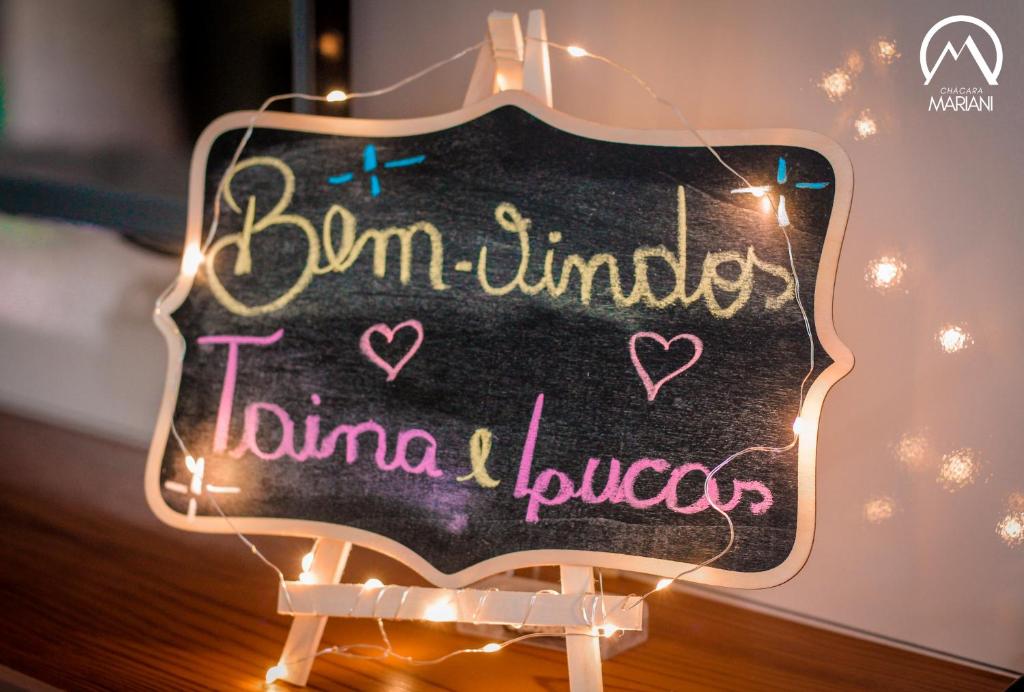 CHÁCARA
MARIANI
Bem-vindos
Taina e Lucas